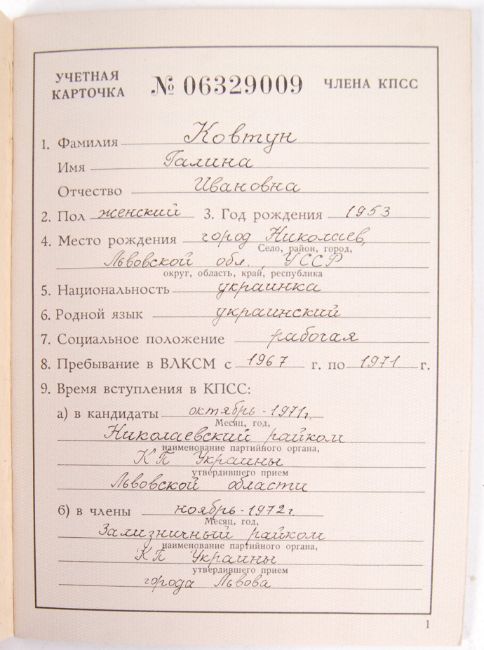 УЧЕТНАЯ КАРТОЧКА № 06329009 ЧЛЕНА КПСС
1. Фамилия Ковтун
Имя Галина
Отчество Ивановна
2. Пол женский 3. Год рождения 1953
4. Место рождения город Николаев,
Село, район, город,
Львовской обл. УССР
округ, область, край, республика
5. Национальность украинка
6. Родной язык украинский
7. Социальное положение рабочая
8. Пребывание в ВЛКСМ с 1967 г. по 1971 г.
9. Время вступления в КПСС:
а) в кандидаты октябрь-1971г.
Месяц, год,
Николаевский райком
наименование партийного органа,
КП Украины
утвердившего прием
Львовской области
б) в члены ноябрь-1972г
Месяц, год,
Зализничный райком
наименование партийного органа,
КП Украины
утвердившего прием
города Львова
1